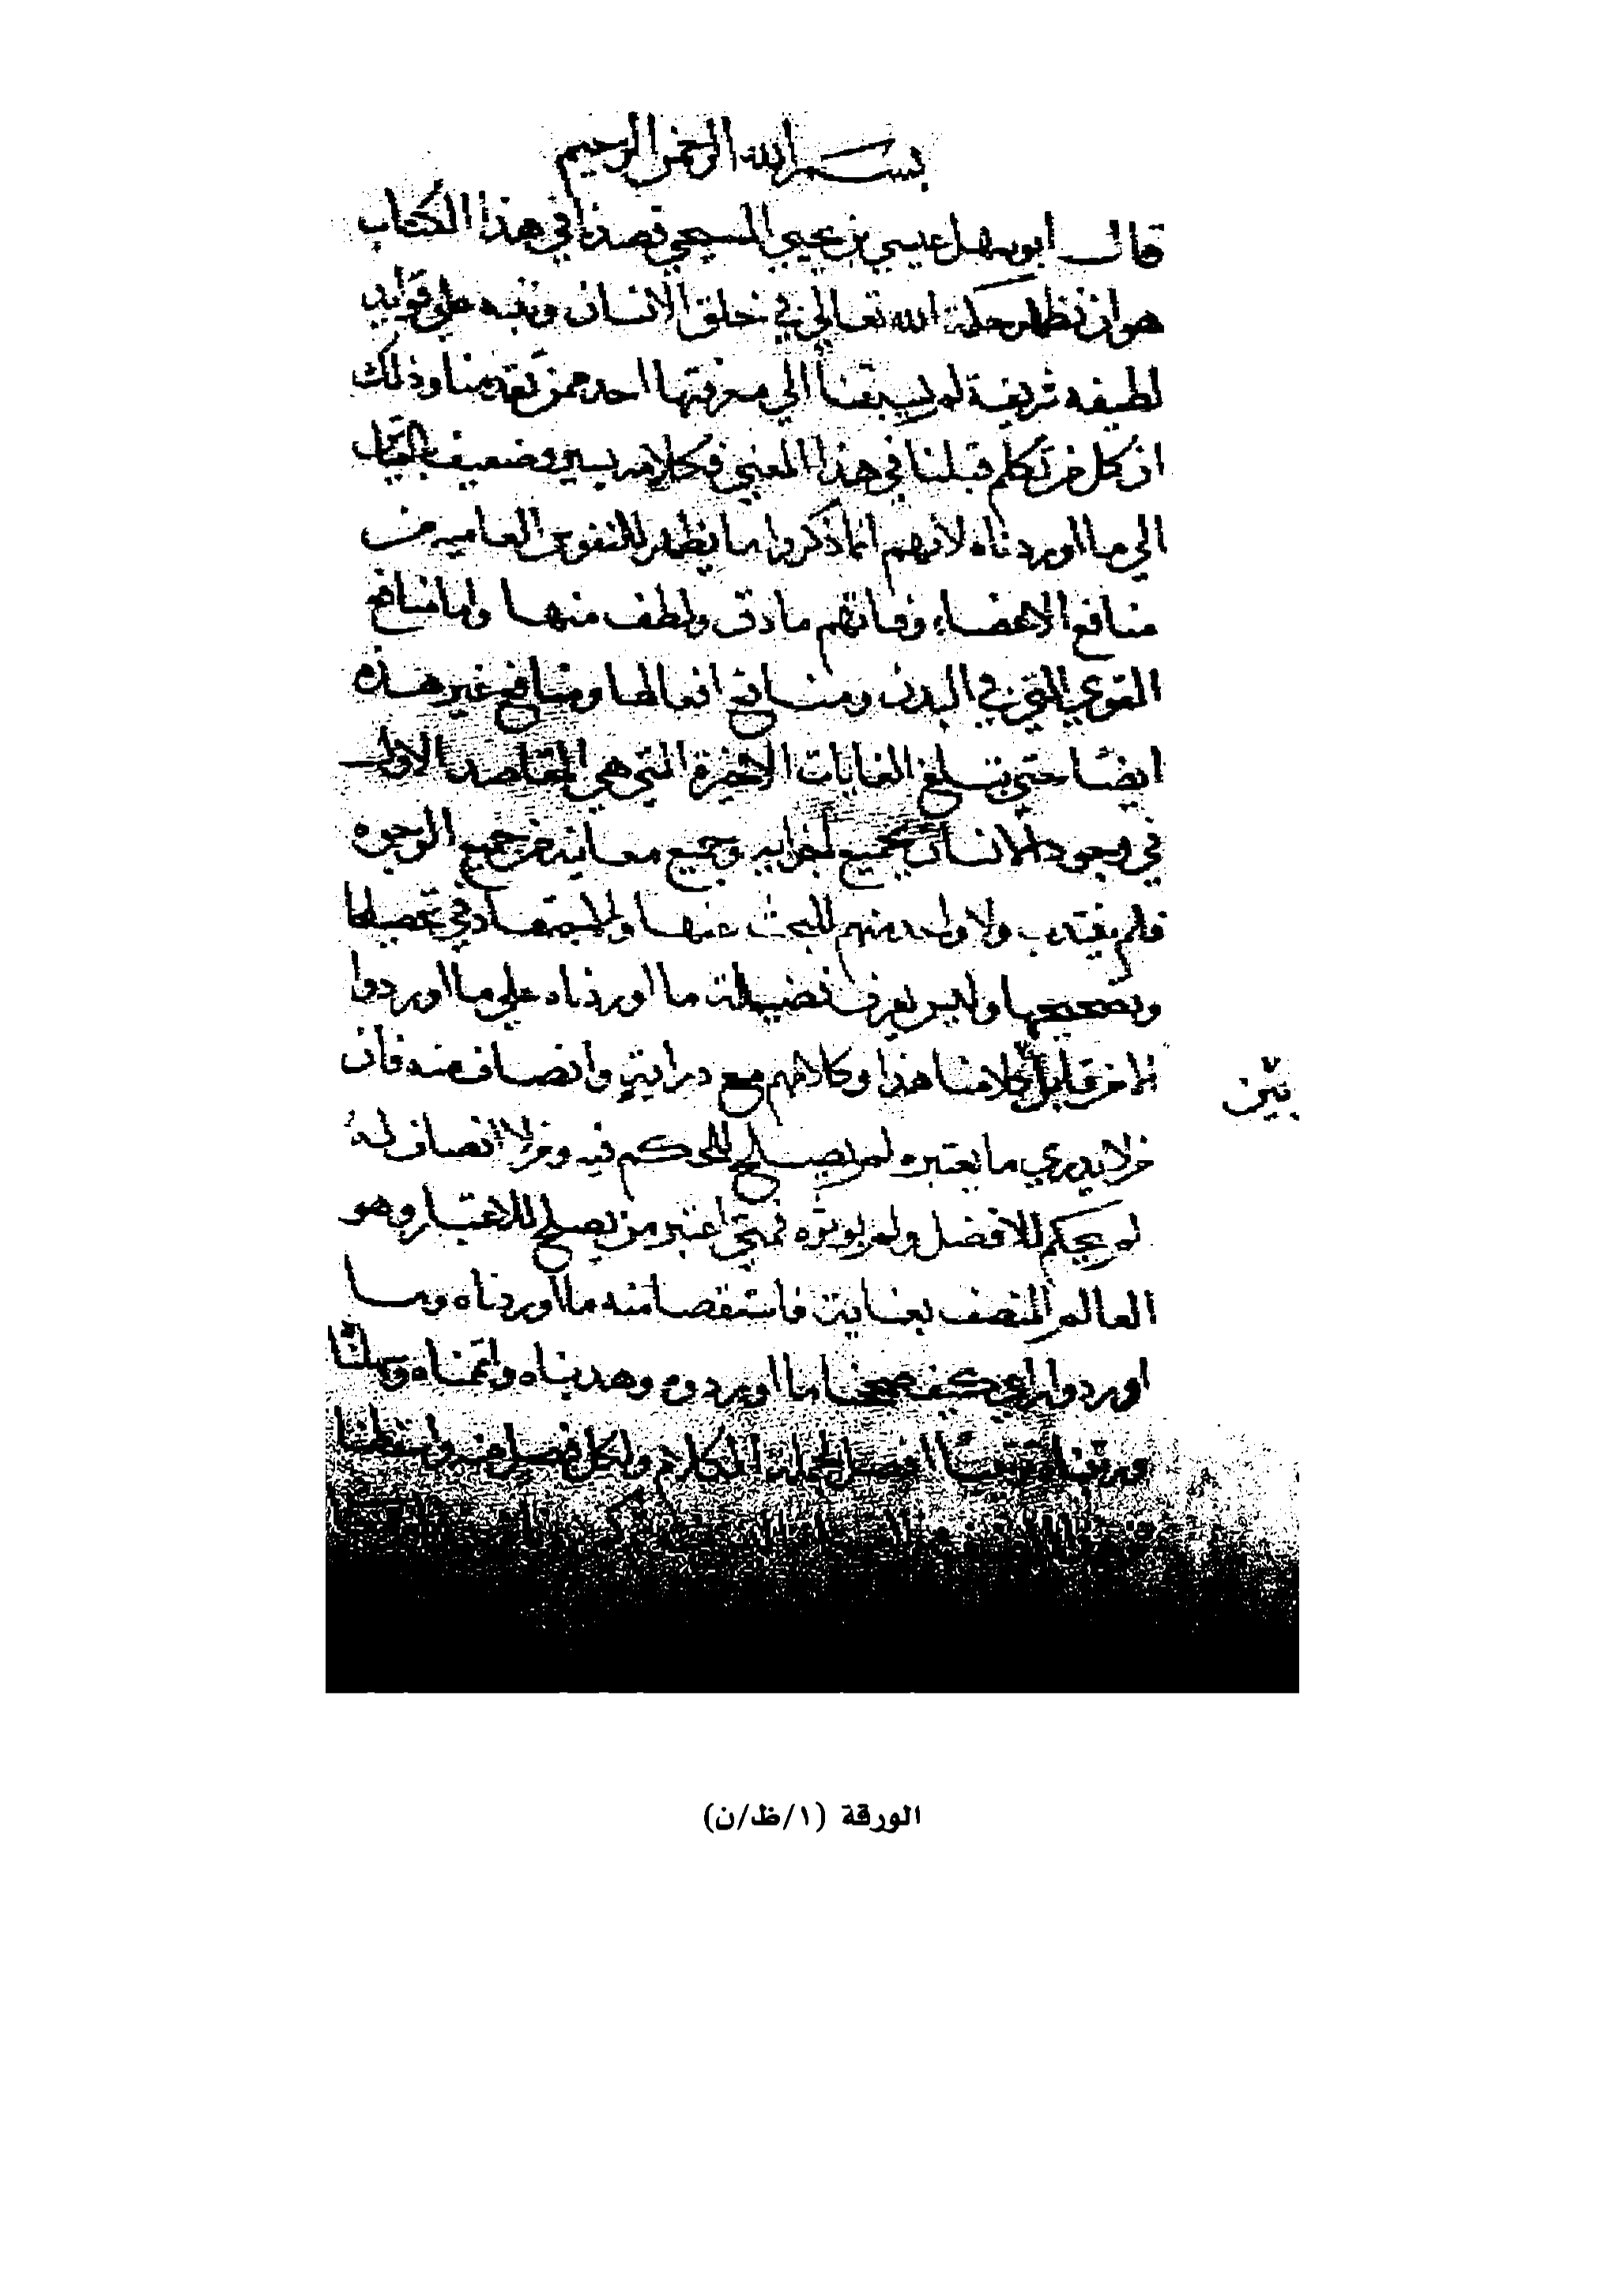 بسم الله الرحمن الرحيم
قال ابو سهل عيسى بن يحيى المسيحي قصدنا في هذا الكتاب
هو ان نظهر حكمة الله تعالى في خلق الانسان وننبه على فوايد
لطيفه شريفة لم يسبقنا الى معرفتها احد ممن تقدمنا وذلك
ان كل من تكلم قبلنا في هذا المعنى فكلامه يسير وضعيف بالقياس
الى ما اوردناه لانهم انما ذكروا ما يظهر للنفوس العاميه من
منافع الاعضاء وفاتهم ما دق ولطف منها واما منافع
القوى التي في البدن ومنافع افعالها ومنافع غير هذه
ايضا حتى تبلغ الغايات الاخيرة التي هي المقاصد الاول
في وجود الانسان بجميع اجزايه وجميع معانيه من جميع الوجوه
فلم ينتدب ولا واحد منهم للبحث عنها والاجتهاد في تحصيلها
وتصحيحها وليس يعرف فضيلة ما اوردناه على ما اوردوا
الا من قابل كلامنا هذا وكلامهم مع دراية وانصاف منه فان
بين
من لا يدري ما يعتبره لم يصلح للحكم فيه ومن لا انصاف له
لم يحكم للافضل ولم يوثره فمتى اعتبر من يصلح للاعتبار وهو
العالم المنصف بعناية فاستقصا منه ما اوردناه وما
اوردوا راى كيف صححنا ما اوردوه وهذبناه واتممناه وكملنا
ورتبناه ترتيبا افضل لجملة الكلام ولكل فصل منه واسقطنا
الورقة (١/ظ/ن)